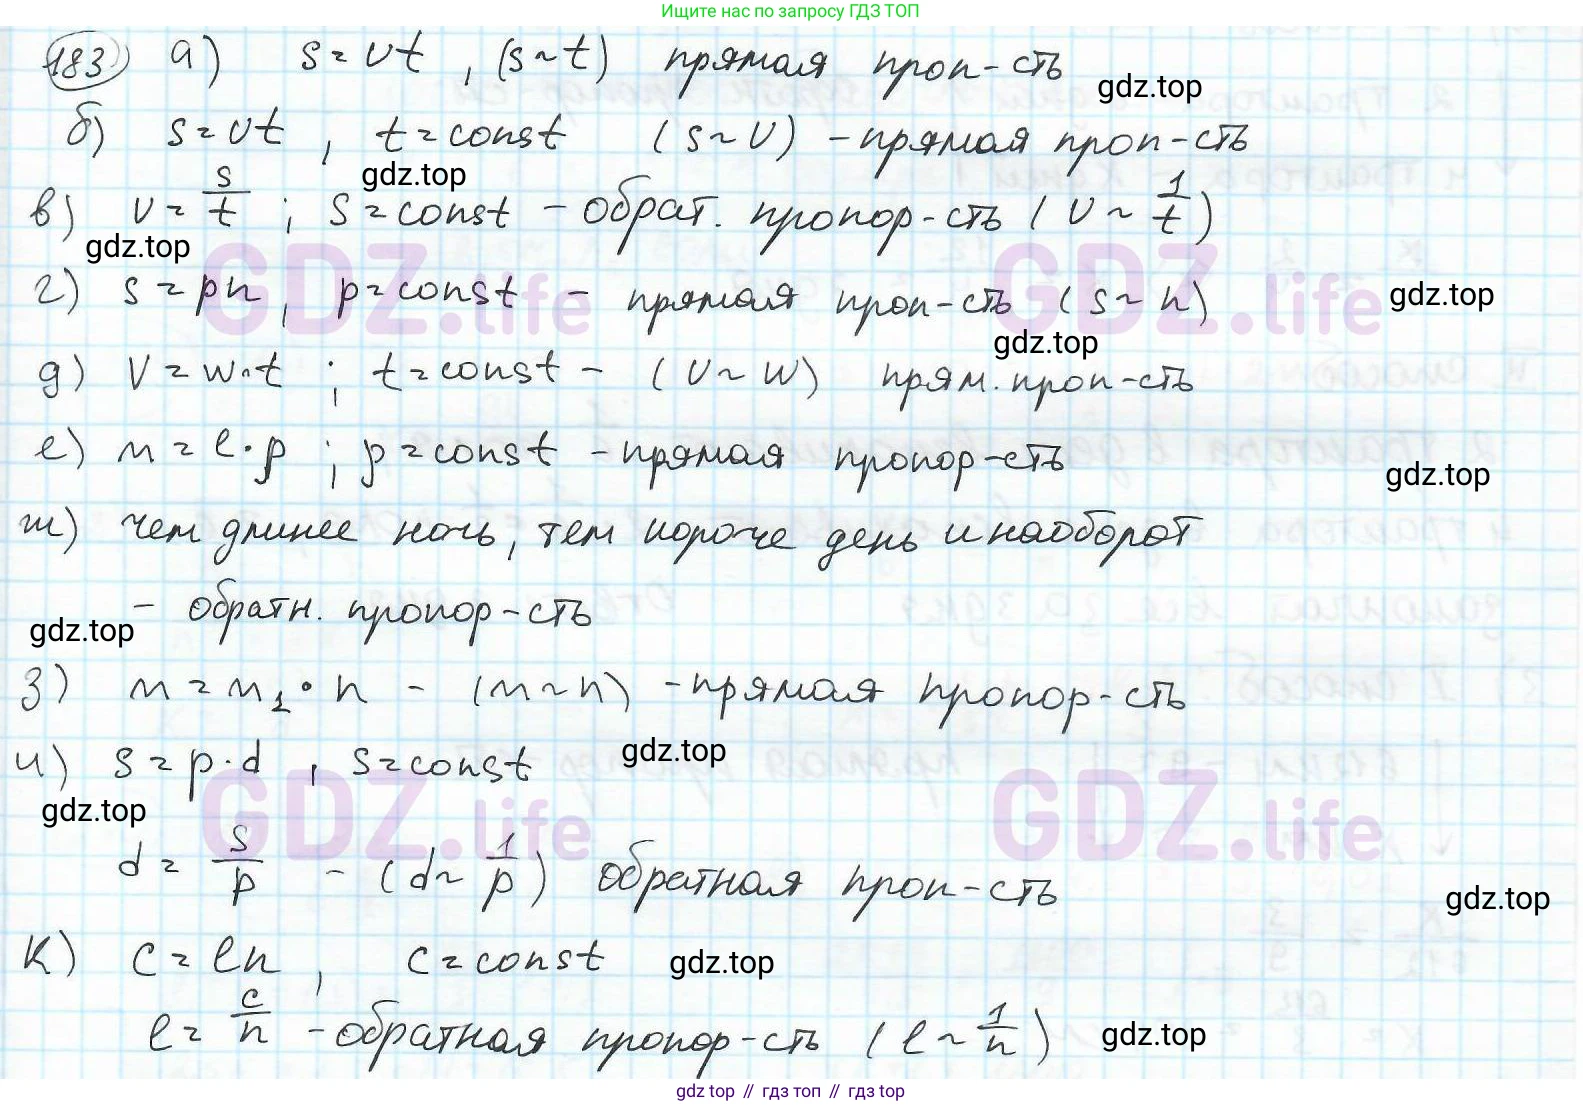 Ищите нас по запросу ГДЗ ТОП
183 а) s = vt , (s ~ t) прямая проп-сть
gdz.top
б) s = vt , t = const (s ~ v) - прямая проп-сть
gdz.top
в) v = s/t ; s = const - обрат. пропор-сть ( v ~ 1/t )
gdz.top
GDZ.life GDZ.life
г) s = pn , p = const - прямая проп-сть ( s ~ n )
gdz.top
gdz.top
д) V = w·t ; t = const - ( v ~ w ) прям. проп-сть
е) m = l · p ; p = const - прямая пропор-сть
gdz.top
ж) чем длинее ночь, тем короче день и наоборот
- обратн. пропор-сть
gdz.top
з) m = m₁ · n - (m ~ n) - прямая пропор-сть
и) s = p · d , s = const
gdz.top
gdz.top
GDZ.life GDZ.life
d = s/p - ( d ~ 1/p ) обратная проп-сть
gdz.top
к) c = ln , c = const
gdz.top
l = c/n - обратная пропор-сть ( l ~ 1/n )
gdz.top
gdz top // гдз топ // gdz top